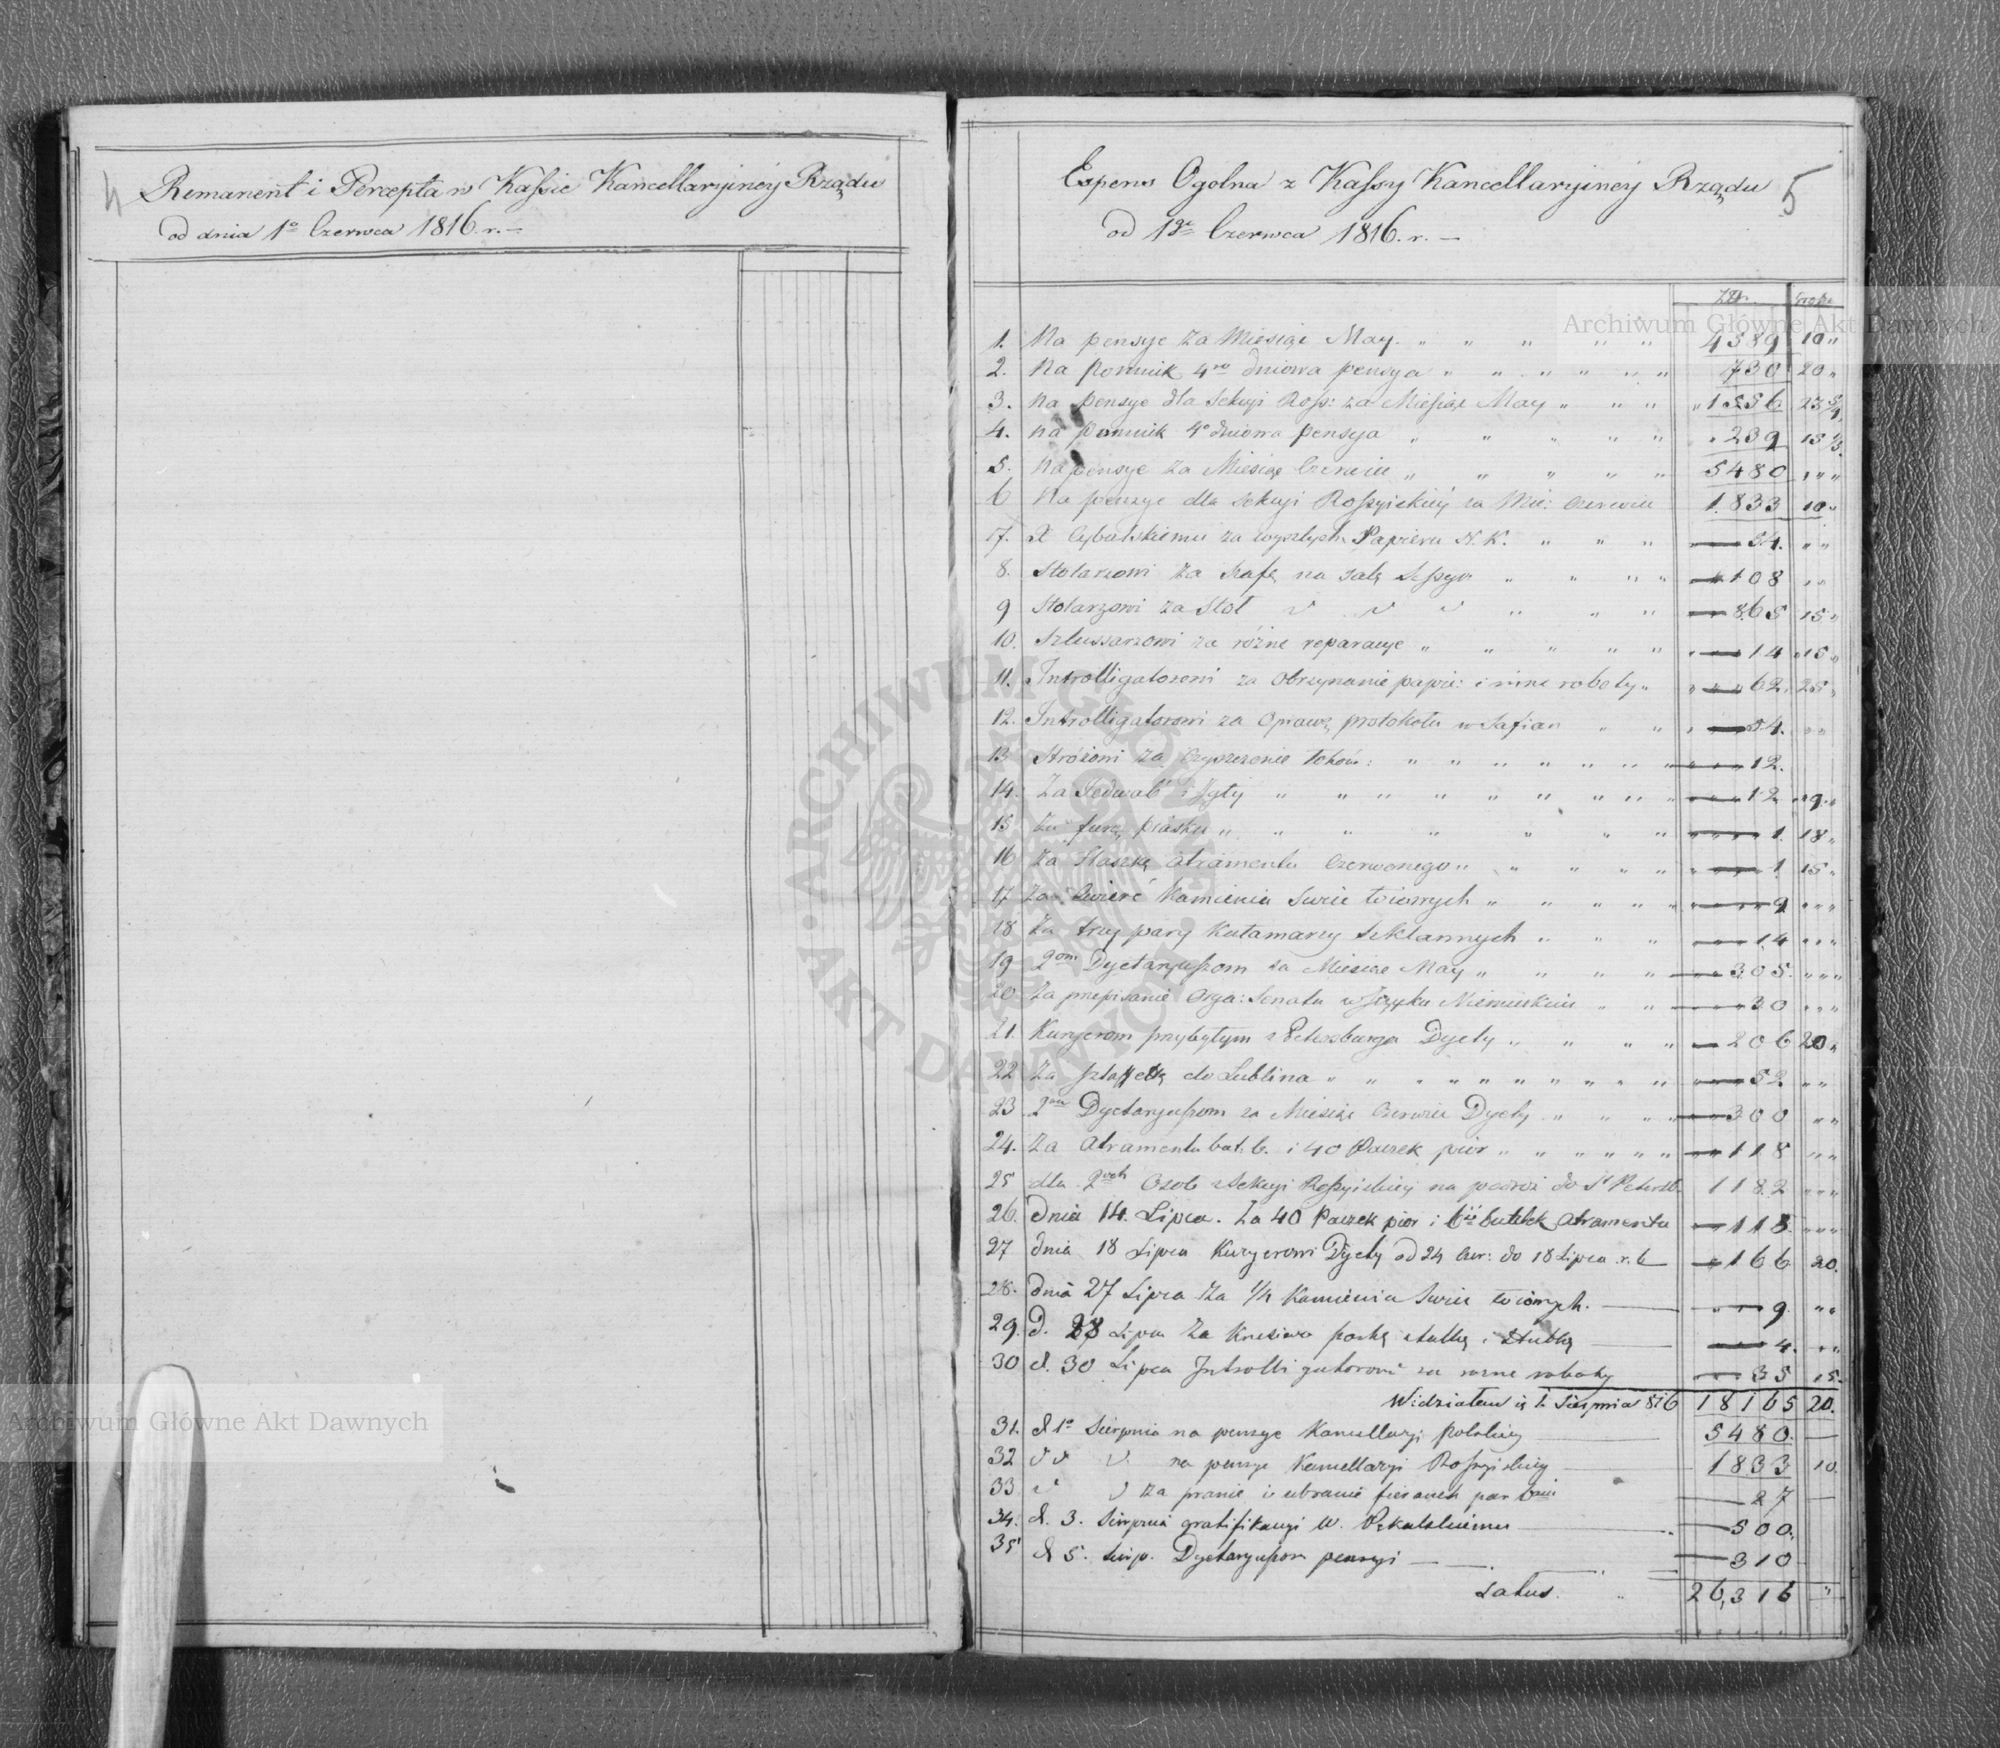 4
Remanent i Percepta w Kassie Kancellaryiney Rządu
od dnia 1º Czerwca 1816. r. –
Expens Ogolna z Kassy Kancellaryiney Rządu
5
od 1go Czerwca 1816. r. –
Złp. Grosze
1. Na pensye za Miesiąc May. 4389 10
2. Na Pomnik 4ro dniowa pensya 730 20
3. Na pensye dla Sekcyi Ross: za Miesiąc May 1556 23
4. na pomnik 4o dniowa pensya 239 15
5. Na pensye za Miesiąc Czerwiec 5480
6 Na pensye dla Sekcyi Rossyiskiey za Mie: Czerwiec 1.833 10
7. X Cybulskiemu za Papieru N. K. 54.
8. Stolarzowi za Szafę na salę Sessyi 108
9 Stolarzowi za Stoł 865 15
10. Szlussarzowi za różne reparacye 14 15
11. Introlligatorowi za Obrzynanie papie: i inne roboty 62. 25
12. Introlligatorowi za Oprawę protokołu w Safian 54.
13 Stróżowi za Czyszczenie 12.
14. Za Jedwab i Igły 12 9
15 Za furę piasku 1. 18
16 Za flaszkę atramentu czerwonego 1 15
17 Za ćwierć Kamienia Swiec łoiowych 9
18 Za trzy pary Kałamarzy Szklannych 14
19 2om Dyetaryuszom za Miesiąc May 305.
20 Za przepisanie Orga: Senatu w Języku Niemieckim 30
21. Kuryerom przybyłym z Petersburga Dyety 206 20
22 Za sztafetę do Lublina 52
23 2om Dyetaryuszom za Miesiąc Czerwiec Dyety 300
24. Za Atramentu but: 6. i 40 Paczek pior 118
25 dla 2och Osob z Sekcyi Rossyiskiey na podroż do St Petersb. 1182
26. Dnia 14. Lipca. Za 40 Paczek pior i 6ść butelek Atramentu 118.
27 dnia 18 Lipca Kuryerowi Dyety od 24 Czer: do 18 Lipca r. b 166 20.
28. dnia 27 Lipca Za 1/4 Kamienia Swiec łoiowych. 9
29. D. 28 Lipca Za Krzesiwo i 4.
30 d. 30 Lipca Introlligatorowi za rozne roboty 35 15.
Widziałem d. 1. Sierpnia 816 18165 20.
31. d 1o Sierpnia na pensye Kancellaryi Polskiey 5480.
32 na pensye Kancellaryi Rossyiskiey 1833 10.
33 za pranie i ubranie firanek par 27
34. d. 3. Sierpnia gratifikacyi W. Pękalskiemu 500.
35 d 5. Sierp. Dyetaryuszom pensyi 310
Latus. 26,316
Archiwum Główne Akt Dawnych
Archiwum Główne Akt Dawnych
ARCHIWUM GŁÓWNE · AKT DAWNYCH ·